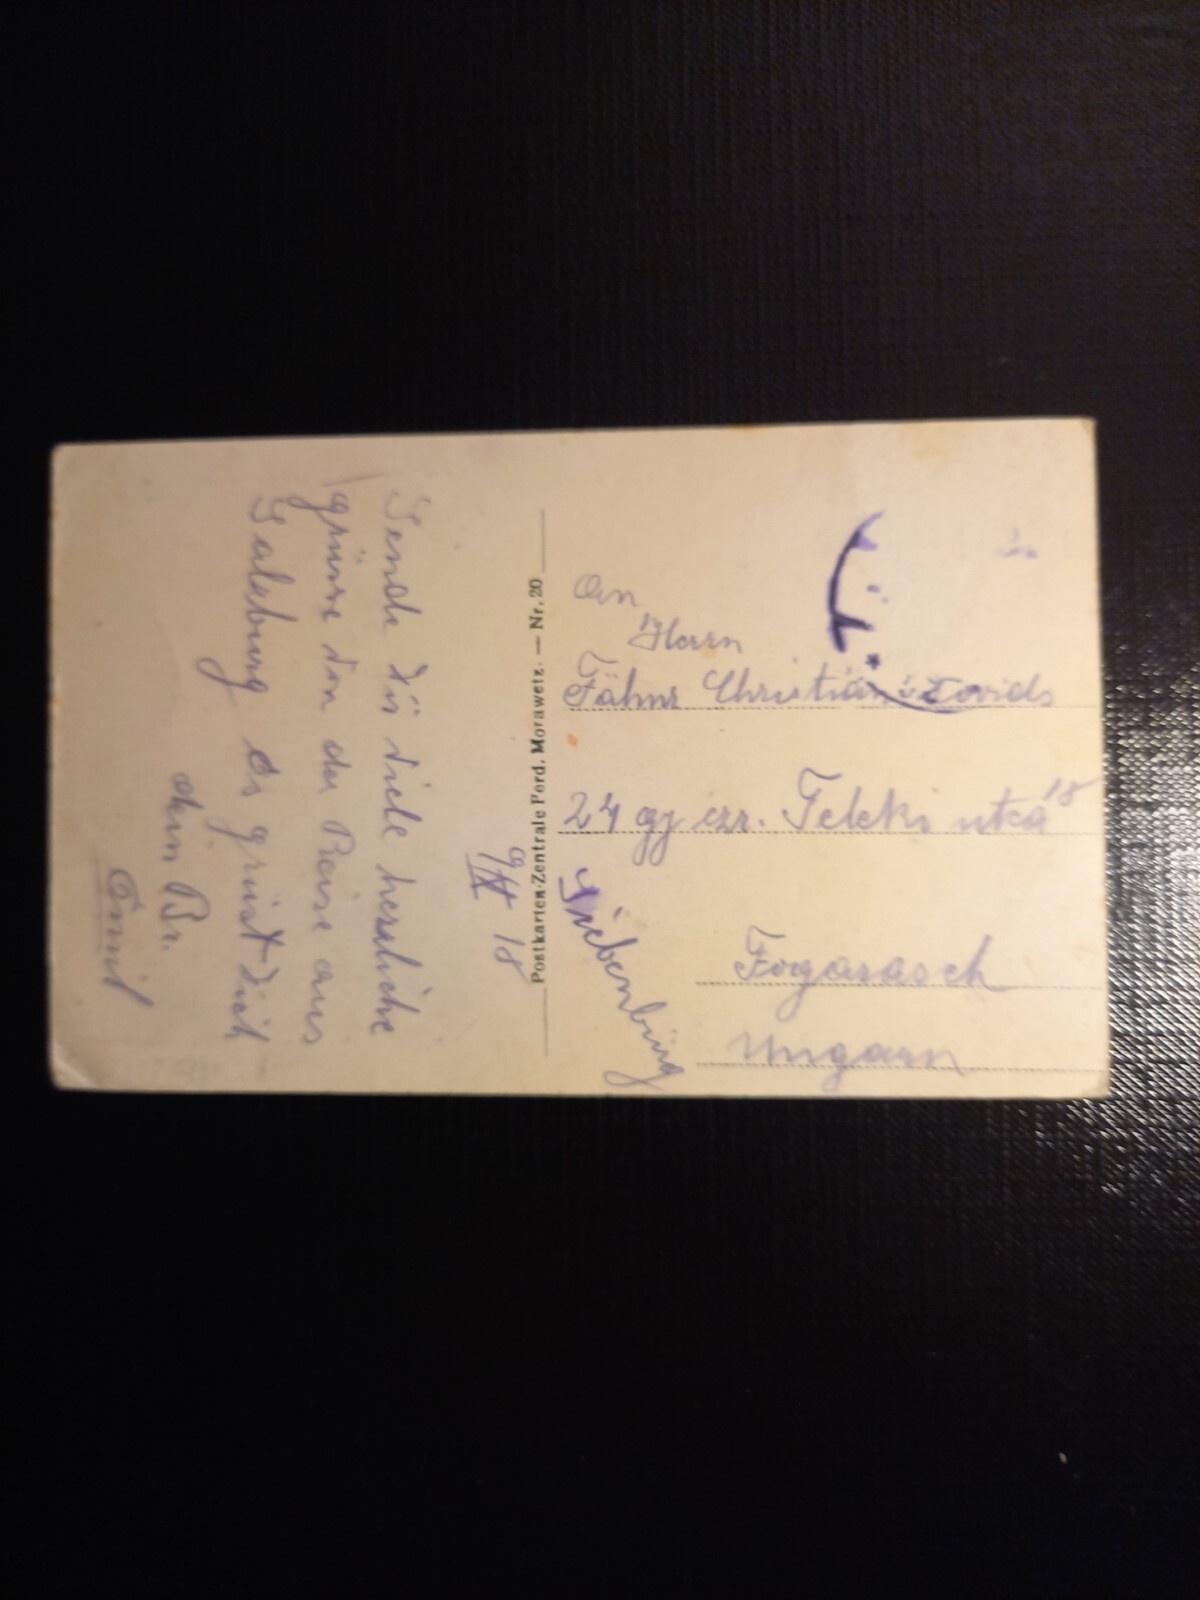 9/IX 18
Sende Dir viele herzliche
grüsse von der Reise aus
Salzburg es grüsst Dich
dein Br.
Emil
Postkarten-Zentrale Ferd. Morawetz. — Nr. 20
An
Herrn
Fähnr Christian
24 gy ezr. Teleki utca 18
Fogarasch
Ungarn
Siebenbürg